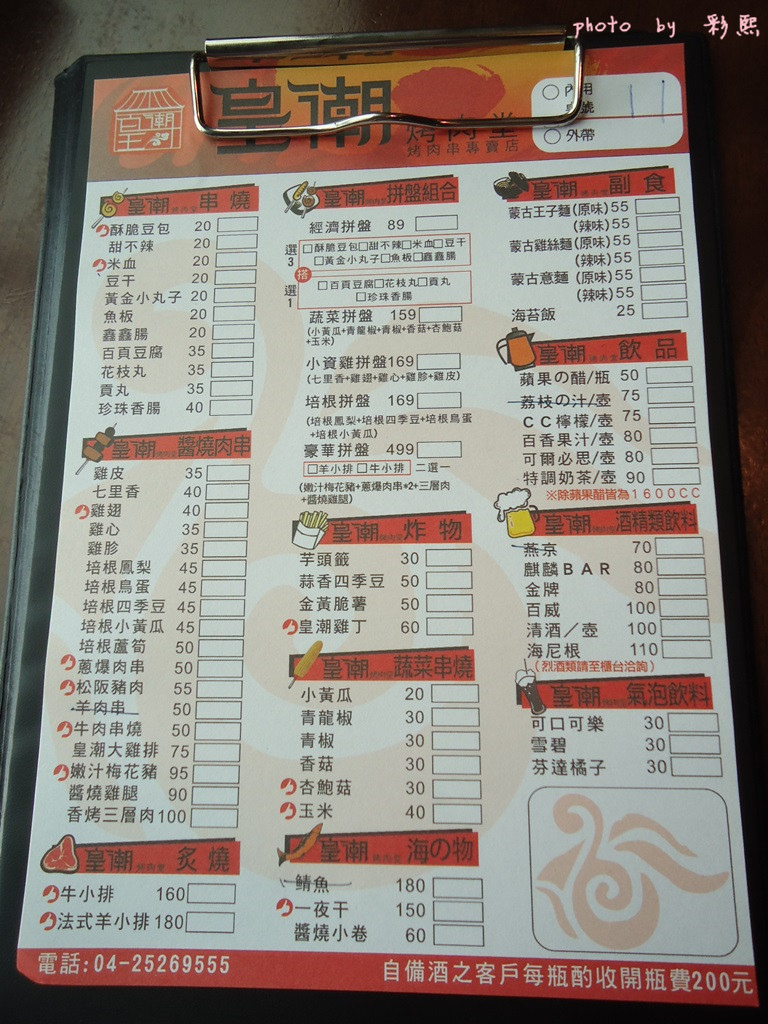 photo by 彩熙
皇潮
烤肉堂
烤肉串專賣店
內用
桌號
11
外帶
皇潮 串燒
酥脆豆包 20
甜不辣 20
米血 20
豆干 20
黃金小丸子 20
魚板 20
鑫鑫腸 20
百頁豆腐 35
花枝丸 35
貢丸 35
珍珠香腸 40
皇潮 醬燒肉串
雞皮 35
七里香 40
雞翅 40
雞心 35
雞胗 35
培根鳳梨 45
培根鳥蛋 45
培根四季豆 45
培根小黃瓜 45
培根蘆筍 50
蔥爆肉串 50
松阪豬肉 55
羊肉串 50
牛肉串燒 50
皇潮大雞排 75
嫩汁梅花豬 95
醬燒雞腿 90
香烤三層肉 100
皇潮 炙燒
牛小排 160
法式羊小排 180
皇潮 拼盤組合
經濟拼盤 89
選3
□酥脆豆包□甜不辣□米血□豆干
□黃金小丸子□魚板□鑫鑫腸
搭
選1
□百頁豆腐□花枝丸□貢丸
□珍珠香腸
蔬菜拼盤 159
(小黃瓜+青龍椒+青椒+香菇+杏鮑菇
+玉米)
小資雞拼盤 169
(七里香+雞翅+雞心+雞胗+雞皮)
培根拼盤 169
(培根鳳梨+培根四季豆+培根鳥蛋
+培根小黃瓜)
豪華拼盤 499
□羊小排 □牛小排 二選一
(嫩汁梅花豬+蔥爆肉串+2+三層肉
+醬燒雞腿)
皇潮 炸物
芋頭籤 30
蒜香四季豆 50
金黃脆薯 50
皇潮雞丁 60
皇潮 蔬菜串燒
小黃瓜 20
青龍椒 30
青椒 30
香菇 30
杏鮑菇 30
玉米 40
皇潮 海の物
鯖魚 180
一夜干 150
醬燒小卷 60
皇潮 副食
蒙古王子麵(原味) 55
(辣味) 55
蒙古雞絲麵(原味) 55
(辣味) 55
蒙古意麵(原味) 55
(辣味) 55
海苔飯 25
皇潮 飲品
蘋果の醋/瓶 50
荔枝の汁/壺 75
CC檸檬/壺 75
百香果汁/壺 80
可爾必思/壺 80
特調奶茶/壺 90
※除蘋果醋皆為1600CC
皇潮 酒精類飲料
燕京 70
麒麟BAR 80
金牌 80
百威 100
清酒/壺 100
海尼根 110
(烈酒類請至櫃台洽詢)
皇潮 氣泡飲料
可口可樂 30
雪碧 30
芬達橘子 30
電話:04-25269555
自備酒之客戶每瓶酌收開瓶費200元